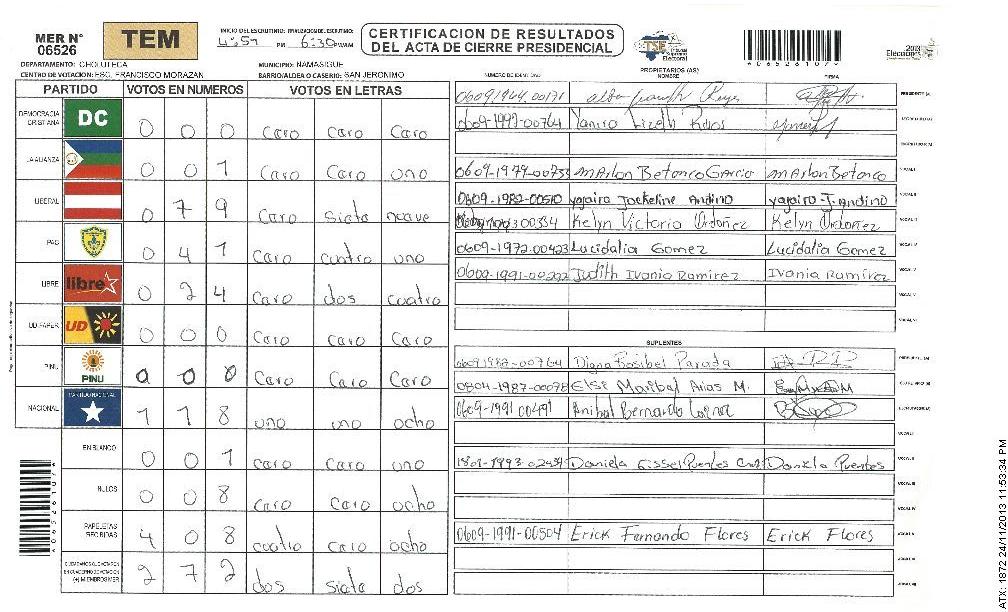 MER N° 06526
TEM
INICIO DEL ESCRUTINIO: 4:59 PM FINALIZACION DEL ESCRUTINIO: 6:30 PM/AM
CERTIFICACION DE RESULTADOS DEL ACTA DE CIERRE PRESIDENCIAL
TSE Tribunal Supremo Electoral
4065261079
2013 Elecciones
DEPARTAMENTO: CHOLUTECA MUNICIPIO: NAMASIGUE
CENTRO DE VOTACION: ESC. FRANCISCO MORAZAN BARRIO/ALDEA O CASERIO: SAN JERONIMO
PARTIDO VOTOS EN NUMEROS VOTOS EN LETRAS
DEMOCRACIA CRISTIANA DC 0 0 0 Caro Caro Caro
LA ALIANZA 0 0 1 Caro Caro uno
LIBERAL 0 7 9 Caro Siete nueve
PAC 0 4 1 Caro cuatro uno
LIBRE libre 0 2 4 Caro dos cuatro
UD-FAPER UD 0 0 0 Caro Caro Caro
PINU PINU 0 0 0 Caro Caro Caro
NACIONAL PARTIDO NACIONAL 1 1 8 uno uno ocho
EN BLANCO 0 0 1 caro Caro uno
NULOS 0 0 8 Caro Caro ocho
PAPELETAS RECIBIDAS 4 0 8 cuatro caro ocho
CIUDADANOS QUE VOTARON EN CUADERNO DE VOTACION (+) MIEMBROS MER 2 7 2 dos Siete dos
NUMERO DE IDENTIDAD PROPIETARIOS (AS) NOMBRE FIRMA
06091964.00171 Reyes PRESIDENTE (A)
0609-1992-00764 Yanira Lizeth
0609-1979-00759 Marlon Betanco Garcia Marlon Betanco VOCAL I
0609-1982-00510 yajaira Jackeline Andino yajaira J. Andino VOCAL II
00334 Kelyn Victoria Ordoñez Kelyn Ordoñez VOCAL III
0609-1972-00423 Lucidalia Gomez Lucidalia Gomez VOCAL IV
0609-1991-00222 Judith Ivania Ramirez Ivania Ramirez VOCAL V
SUPLENTES
06091982-00764 Digna Rosibel Parada
0804-1987-00078 Elsi Maribel Arias M.
0609-1991 00491 Anibal Bernardo
1801-1993-02434 Daniela Gissel Puentes Daniela Puentes
0609-1991-00504 Erick Fernando Flores Erick Flores
4065261079
ATX: 1872 24/11/2013 11:53:34 PM